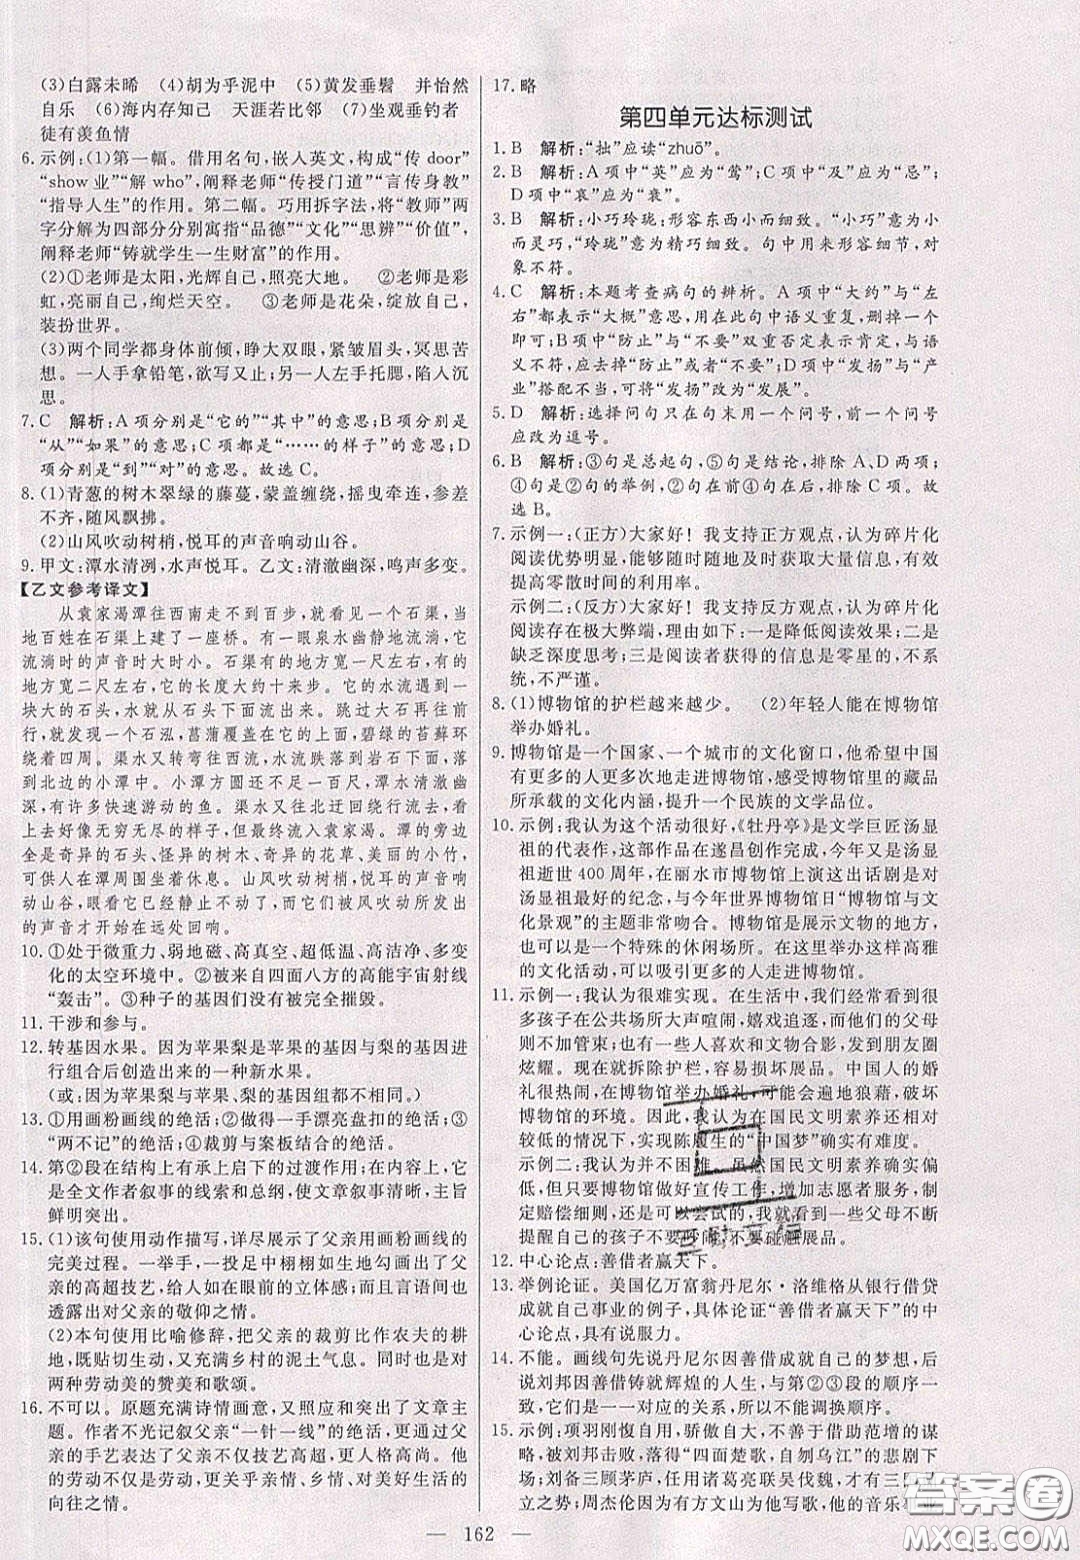 (3)白露未晞　(4)胡为乎泥中　(5)黄发垂髫　并怡然
自乐　(6)海内存知己　天涯若比邻　(7)坐观垂钓者
徒有羡鱼情
6. 示例:(1)第一幅。借用名句,嵌入英文,构成“传 door”
“show 业”“解 who”,阐释老师“传授门道”“言传身教”
“指导人生”的作用。第二幅。巧用拆字法,将“教师”两
字分解为四部分分别寓指“品德”“文化”“思辨”“价值”,
阐释老师“铸就学生一生财富”的作用。
(2)①老师是太阳,光辉自己,照亮大地。　②老师是彩
虹,亮丽自己,绚烂天空。　③老师是花朵,绽放自己,
装扮世界。
(3)两个同学都身体前倾,睁大双眼,紧皱眉头,冥思苦
想。一人手拿铅笔,欲写又止;一人左手托腮,陷入沉
思。
7. C　解析:A 项分别是“它的”“其中”的意思;B 项分别是
“从”“如果”的意思;C 项都是“……的样子”的意思;D
项分别是“到”“对”的意思。故选 C。
8. (1)青葱的树木翠绿的藤蔓,蒙盖缠绕,摇曳牵连,参差
不齐,随风飘拂。
(2)山风吹动树梢,悦耳的声音响动山谷。
9. 甲文:潭水清冽,水声悦耳。乙文:清澈幽深,鸣声多变。
【乙文参考译文】
从袁家渴潭往西南走不到百步,就看见一个石渠,当
地百姓在石渠上建了一座桥。有一眼泉水幽静地流淌,它
流淌时的声音时大时小。石渠有的地方宽一尺左右,有的
地方宽二尺左右,它的长度大约十来步。它的水流遇到一
块大的石头,水就从石头下面流出来。跳过大石再往前
走,就发现一个石泓,菖蒲覆盖在它的上面,碧绿的苔藓环
绕着四周。渠水又转弯往西走,水流跌落到岩石下面,落
到北边的小潭中。小潭方圆还不足一百尺,潭水清澈幽
深,有许多快速游动的鱼。渠水又往北迂回绕行一些,看
起来好像无穷无尽的样子,但最终流入袁家渴。潭的旁边
全是奇异的石头、怪异的树木、奇异的花草、美丽的小竹,
可供人在潭周围坐着休息。山风吹动树梢,悦耳的声音响
动山谷,眼看它已经静止不动了可是被风吹动所发出
的声音才开始在远处回响。
10. ①处于微重力、弱地磁、高真空、超低温、高洁净、多变
化的太空环境中。②被来自四面八方的高能宇宙射线
“轰击”。③种子的基因们没有被完全摧毁。
11. 干涉和参与。
12. 转基因水果。因为苹果梨是苹果的基因与梨的基因进
行组合后创造出来的一种新水果。
(或:因为苹果梨与苹果、梨的基因组都不相同。)
13. ①用画粉画线的绝活;②做得一手漂亮盘扣的绝活;③
“两不记”的绝活;④裁剪与案板结合的绝活。
14. 第②段在结构上有承上启下的过渡作用;在内容上,它
是全文作者叙事的线索和总纲,使文章叙事清晰,主旨
鲜明突出。
15. (1)该句使用动作描写,详尽展示了父亲用画粉画线的
完美过程。一举手,一投足中栩栩如生地描绘出父亲
的高超技艺,给人如在眼前般的强烈印象,在字里行间也
透露出对父亲的敬仰之情。
(2)本句使用比喻修辞,把父亲的裁剪比作农夫的耕
地,既贴切生动,又充满乡村的泥土气息。同时也是对
两种劳动美的赞美和歌颂。
16. 不可以。原题充满诗情画意,又照应和突出了文章主
题。作者不光记叙父亲“一针一线”的劳作,更突出父亲
的手艺表达了父亲不仅技艺高超,更人格高尚。他
的劳动不仅是劳动,更关乎亲情、乡情、生活的美好和
向往之情。
17. 略
第四单元达标测试
1. B　解析:“拙”应读“zhuō”。
2. B　解析:A 项中“英”应为“莺”;C 项中“及”应为“忌”;
D 项中“哀”应为“衰”。
3. B　解析:小巧玲珑:形容东西小而细致。“小巧”意为小
而灵巧,“玲珑”意为精巧细致。句中用来形容细节,对
象不符。
4. C　解析:本题考查病句的辨析。A 项中“大约”与“左
右”都表示“大概”意思,在此句中语义重复,删掉一个
即可;B 项中“防止”与“不要”双重否定表示肯定,与语
义不符,应去掉“防止”或者“不要”;D 项中“发扬”与“产
业”搭配不当,可将“发扬”改为“发展”。
5. D　解析:选择问句只在句末用一个问号,前一个问号
应改为逗号。
6. B　解析:③句是总起句,⑤句是结论,排除 A、D 两项;
④句是②句的举例,④句在前②句在后,排除 C 项。故
选 B。
7. 示例一:(正方)大家好! 我支持正方观点,认为碎片化
阅读优势明显,能够随时随地及时获取大量信息,有效
提高零散时间的利用率。
示例二:(反方)大家好! 我支持反方观点,认为碎片化
阅读存在极大弊端,理由如下:一是降低阅读效果;二是
缺乏深度思考;三是阅读者获得的信息是零星的,不系
统,不严谨。
8. (1)博物馆的护栏越来越少。　(2)年轻人能在博物馆
举办婚礼。
9. 博物馆是一个国家、一个城市的文化窗口,他希望中国
有更多的人更多次地走进博物馆,感受博物馆里的藏品
所承载的文化内涵,提升一个民族的文学品位。
10. 示例:我认为这个活动很好,《牡丹亭》是文学巨匠汤显
祖的代表作,这部作品在遂昌创作完成,今年又是汤显
祖逝世 400 周年,在丽水市博物馆上演这出话剧是对
汤显祖最好的纪念,与今年世界博物馆日“博物馆与文
化景观”的主题非常吻合。博物馆是展示文物的地方,
也可以是一个特殊的休闲场所。在这里举办这样高雅
的文化活动,可以吸引更多的人走进博物馆。
11. 示例一:我认为很难实现。在生活中,我们经常看到很
多孩子在公共场所大声喧闹、嬉戏追逐,而他们的父母
则不加管束;也有一些人喜欢和文物合影,发到朋友圈
炫耀。这样做不仅影响他人,更容易损坏展品。中国人的婚
礼很热闹,在博物馆举办婚礼,可能会遍地狼藉,破坏
博物馆的环境。因此,我认为在国民文明素养还相对
较低的情况下,实现陈履生的“中国梦”确实有难度。
示例二:我认为并不困难。虽然国民文明素养确实偏
低,但只要博物馆做好宣传工作,增加志愿者服务,制
定赔偿细则,还是可以尝试的,我就看到一些父母不断
提醒自己的孩子不要吵闹,不要碰触展品。
12. 中心论点:善借者赢天下。
13. 举例论证。美国亿万富翁丹尼尔·洛维格从银行借贷
成就自己事业的例子,具体论证“善借者赢天下”的中
心论点,具有说服力。
14. 不能。画线句先说丹尼尔善借成就自己的梦想,后说
刘邦因善借铸就辉煌的人生,这与第②③段的顺序一
致,它们是一一对应的关系,所以不能调换顺序。
15. 示例:项羽刚愎自用,骄傲自大,不善于借助范增的谋
略,被刘邦击败,落得“四面楚歌,自刎乌江”的悲剧下
场;刘备三顾茅庐,任用诸葛亮联吴伐魏,才有三
立之势;周杰伦因为有方文山为他写歌,他的音乐
162
答案圈
MXQE.COM